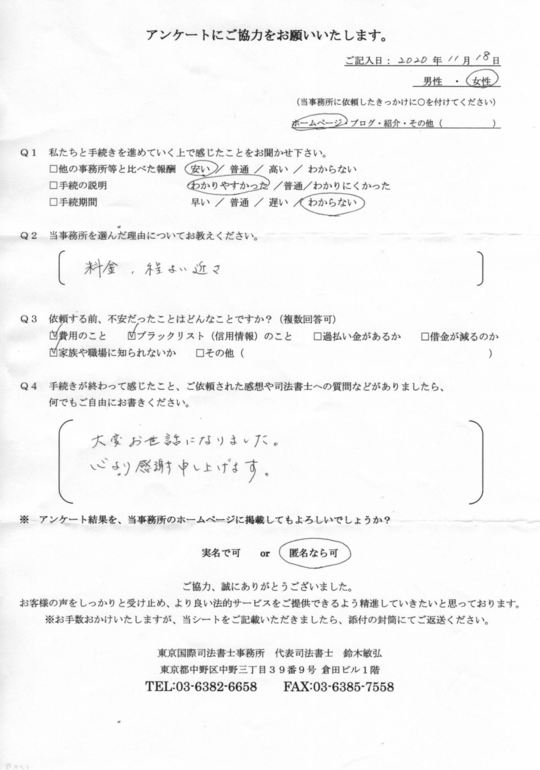 アンケートにご協力をお願いいたします。
ご記入日：2020年11月18日
男性 ・ 女性
（当事務所に依頼したきっかけに○を付けてください）
ホームページ・ブログ・紹介・その他（　　　　　）
Ｑ１ 私たちと手続きを進めていく上で感じたことをお聞かせ下さい。
□他の事務所等と比べた報酬 安い ／ 普通 ／ 高い ／ わからない
□手続の説明 わかりやすかった ／普通／わかりにくかった
□手続期間 早い ／ 普通 ／ 遅い ／ わからない
Ｑ２ 当事務所を選んだ理由についてお教えください。
料金、程よい近さ
Ｑ３ 依頼する前、不安だったことはどんなことですか？（複数回答可）
☑費用のこと ☑ブラックリスト（信用情報）のこと □過払い金があるか □借金が減るのか
☑家族や職場に知られないか □その他（　　　　　）
Ｑ４ 手続きが終わって感じたこと、ご依頼された感想や司法書士への質問などがありましたら、
何でもご自由にお書きください。
大変お世話になりました。
心より感謝申し上げます。
※ アンケート結果を、当事務所のホームページに掲載してもよろしいでしょうか？
実名で可 or 匿名なら可
ご協力、誠にありがとうございました。
お客様の声をしっかりと受け止め、より良い法的サービスをご提供できるよう精進していきたいと思っております。
※お手数おかけいたしますが、当シートをご記載いただきましたら、添付の封筒にてご返送ください。
東京国際司法書士事務所 代表司法書士 鈴木敏弘
東京都中野区中野三丁目３９番９号 倉田ビル１階
TEL:03-6382-6658 FAX:03-6385-7558